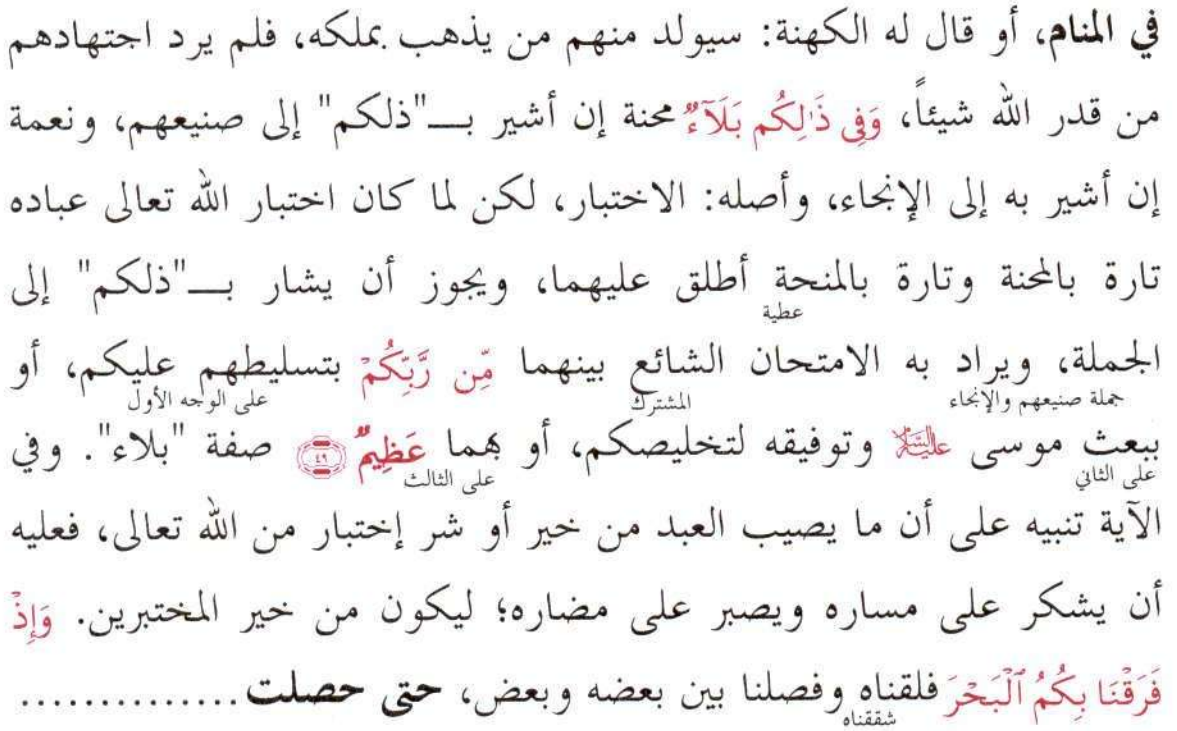 في المنام، أو قال له الكهنة: سيولد منهم من يذهب بملكه، فلم يرد اجتهادهم
من قدر الله شيئاً، وَفِى ذَٰلِكُم بَلَآءٌ محنة إن أشير بـــ"ذلكم" إلى صنيعهم، ونعمة
إن أشير به إلى الإنجاء، وأصله: الاختبار، لكن لما كان اختبار الله تعالى عباده
تارة بالمحنة وتارة بالمنحة أطلق عليهما، ويجوز أن يشار بـــ"ذلكم" إلى
عطية
الجملة، ويراد به الامتحان الشائع بينهما مِّن رَّبِّكُمْ بتسليطهم عليكم، أو
جملة صنيعهم والإنجاء المشترك على الوجه الأول
ببعث موسى عليه السلام وتوفيقه لتخليصكم، أو بهما عَظِيمٌ ٤٩ صفة "بلاء". وفي
على الثاني على الثالث
الآية تنبيه على أن ما يصيب العبد من خير أو شر إختبار من الله تعالى، فعليه
أن يشكر على مساره ويصبر على مضاره؛ ليكون من خير المختبرين. وَإِذْ
فَرَقْنَا بِكُمُ ٱلْبَحْرَ فلقناه وفصلنا بين بعضه وبعض، حتى حصلت..............
شققناه